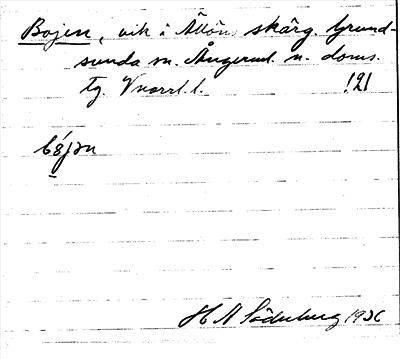 Bojen, vik i Ällön skärg. Grund-
sunda sn. Ångerml. n. doms.
tg. Vnorrl. l. !21
bójən
H A Söderberg 1936